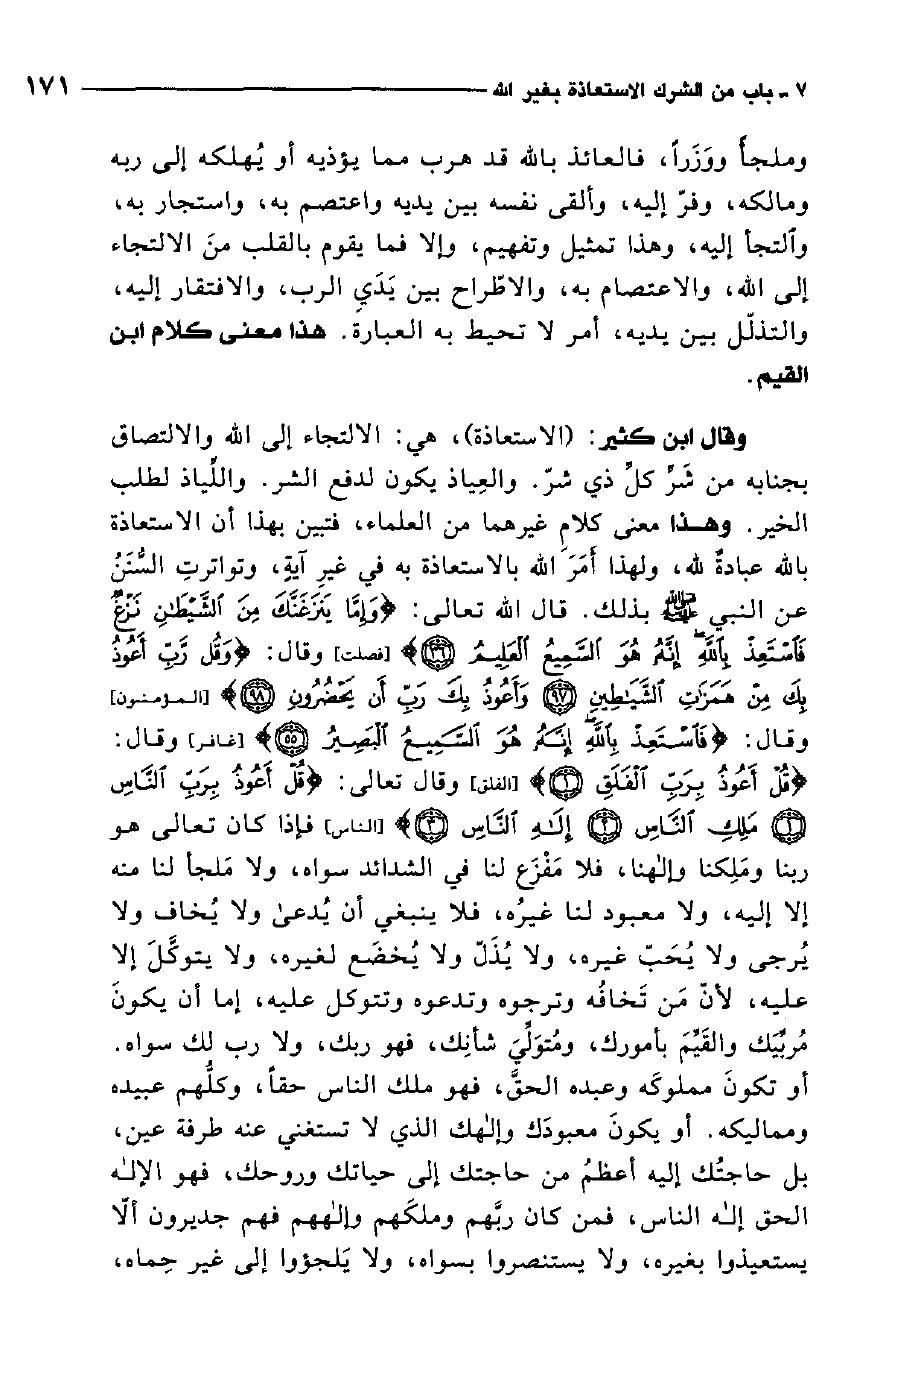 ٧ - باب من الشرك الاستعاذة بغير الله ١٧١
وملجأ ووَزَراً، فالعائذ بالله قد هرب مما يؤذيه أو يُهلكه إلى ربه
ومالكه، وفرّ إليه، وألقى نفسه بين يديه واعتصم به، واستجار به،
وٱلتجأ إليه، وهذا تمثيل وتفهيم، وإلا فما يقوم بالقلب منَ الالتجاء
إلى الله، والاعتصام به، والاطّراح بين يَدَيِ الرب، والافتقار إليه،
والتذلّل بين يديه، أمر لا تحيط به العبارة. هذا معنى كلام ابن
القيم.
وقال ابن كثير: (الاستعاذة)، هي: الالتجاء إلى الله والالتصاق
بجنابه من شَرِّ كلِّ ذي شرّ. والعِياذ يكون لدفع الشر. واللِّياذ لطلب
الخير. وهــذا معنى كلام غيرهما من العلماء، فتبين بهذا أن الاستعاذة
بالله عبادةٌ لله، ولهذا أَمَرَ الله بالاستعاذة به في غيرِ آيةٍ، وتواترتِ السُّنَنُ
عن النبي ﷺ بذلك. قال الله تعالى: ﴿وَإِمَّا يَنزَغَنَّكَ مِنَ ٱلشَّيْطَٰنِ نَزْغٌ
فَٱسْتَعِذْ بِٱللَّهِ إِنَّهُۥ هُوَ ٱلسَّمِيعُ ٱلْعَلِيمُ ﴿٣٦﴾﴾ [فصلت] وقال: ﴿وَقُل رَّبِّ أَعُوذُ
بِكَ مِنْ هَمَزَٰتِ ٱلشَّيَٰطِينِ ﴿٩٧﴾ وَأَعُوذُ بِكَ رَبِّ أَن يَحْضُرُونِ ﴿٩٨﴾﴾ [المؤمنون]
وقال: ﴿فَٱسْتَعِذْ بِٱللَّهِ إِنَّهُۥ هُوَ ٱلسَّمِيعُ ٱلْبَصِيرُ ﴿٥٥﴾﴾ [غافر] وقال:
﴿قُلْ أَعُوذُ بِرَبِّ ٱلْفَلَقِ ﴿١﴾﴾ [الفلق] وقال تعالى: ﴿قُلْ أَعُوذُ بِرَبِّ ٱلنَّاسِ
﴿١﴾ مَلِكِ ٱلنَّاسِ ﴿٢﴾ إِلَٰهِ ٱلنَّاسِ ﴿٣﴾﴾ [الناس] فإذا كان تعالى هو
ربنا ومَلِكنا وإلٰهنا، فلا مَفْزَع لنا في الشدائد سواه، ولا مَلجأ لنا منه
إلا إليه، ولا معبود لنا غيرُه، فلا ينبغي أن يُدعىٰ ولا يُخاف ولا
يُرجى ولا يُحَبّ غيره، ولا يُذَلّ ولا يُخضَع لغيره، ولا يتوكَّلَ إلا
عليه، لأنّ مَن تَخافُه وترجوه وتدعوه وتتوكل عليه، إما أن يكونَ
مُربِّيَك والقَيِّمَ بأمورك، ومُتولِّيَ شأنِك، فهو ربك، ولا رب لك سواه.
أو تكونَ مملوكَه وعبده الحقَّ، فهو ملك الناس حقاً، وكلُّهم عبيده
ومماليكه. أو يكونَ معبودَك وإلٰهك الذي لا تستغني عنه طرفة عين،
بل حاجتُك إليه أعظمُ من حاجتك إلى حياتك وروحك، فهو الإلٰه
الحق إلٰه الناس، فمن كان ربَّهم وملكَهم وإلٰههم فهم جديرون ألّا
يستعيذوا بغيره، ولا يستنصروا بسواه، ولا يَلجؤوا إلى غير حِماه،